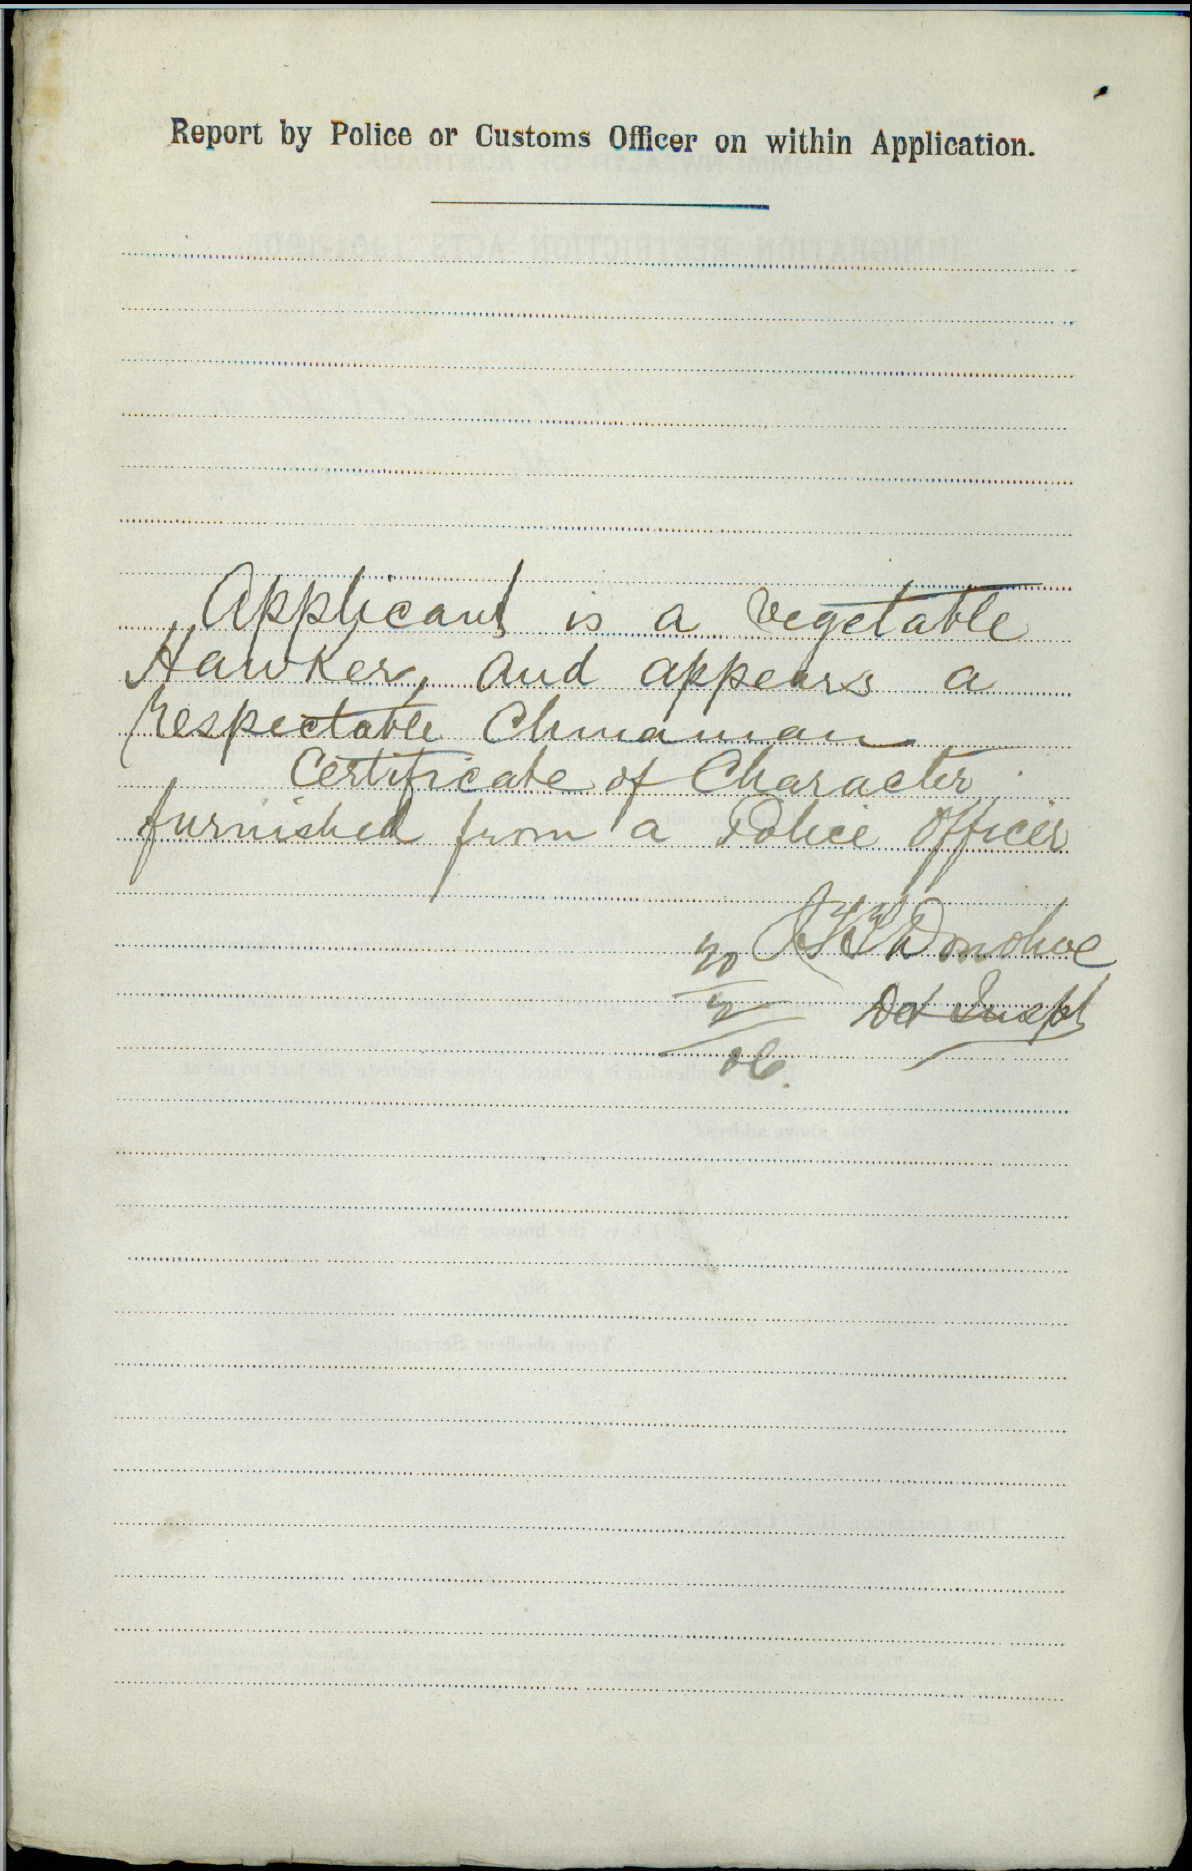 Report by Police or Customs Officer on within Application.
Applicant is a vegetable
Hawker, and appears a
respectable Chinaman
Certificate of Character
furnished from a Police Officer
Donohoe
Det Inspt
06.